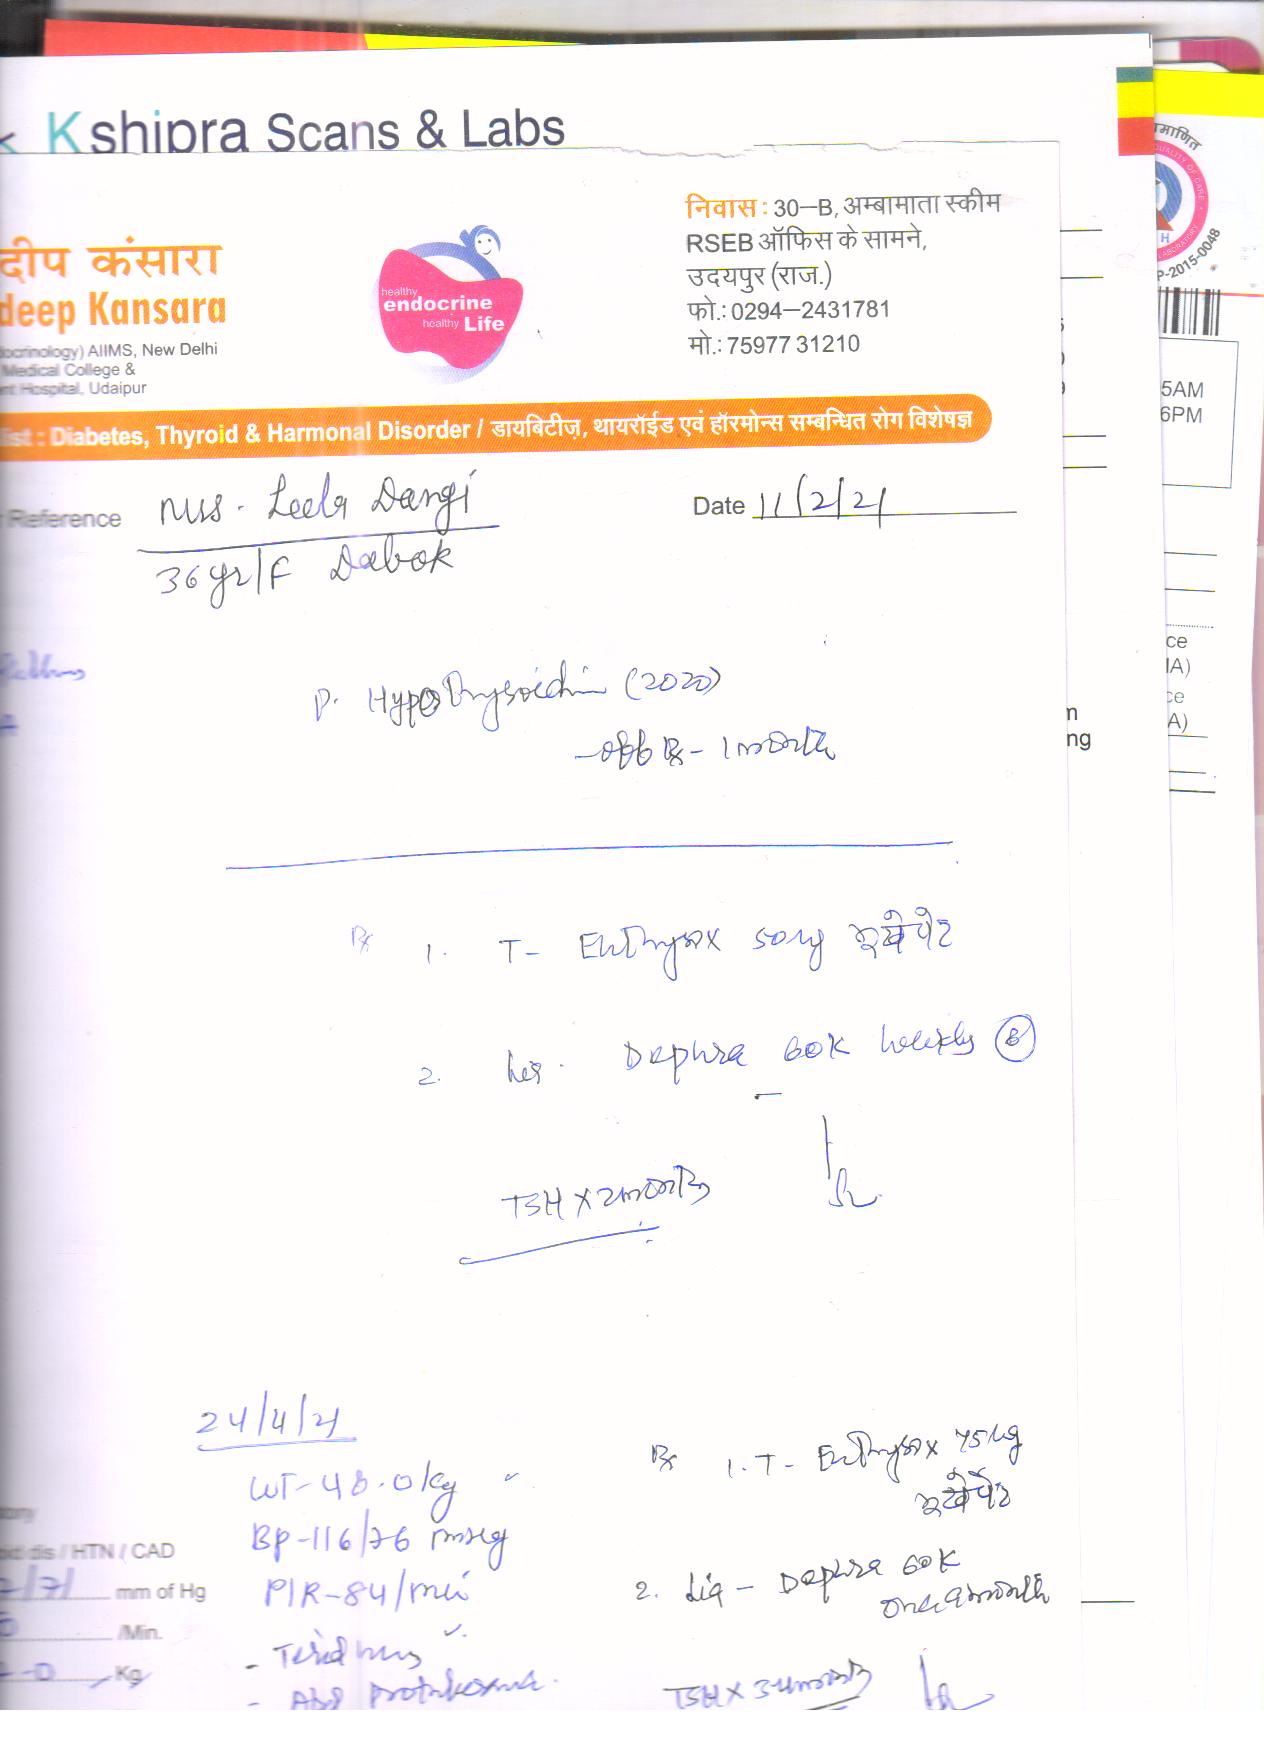 Kshipra Scans & Labs
दीप कंसारा
deep Kansara
AIIMS, New Delhi
Medical College &
Hospital, Udaipur
healthy
endocrine
healthy Life
निवास : 30–B, अम्बामाता स्कीम
RSEB ऑफिस के सामने,
उदयपुर (राज.)
फो.: 0294–2431781
मो.: 75977 31210
ist : Diabetes, Thyroid & Harmonal Disorder / डायबिटीज़, थायरॉईड एवं हॉरमोन्स सम्बन्धित रोग विशेषज्ञ
Reference Mrs. Leela Dangi
Date 11/2/21
36yr/F Dabok
P. Hypothyroidism (2020)
- off Rx - 1 month
Rx 1. T- Euthyrox 50
2. Dephra 60K weekly 8
TSH x 2 months
24/4/21
WT- 48.0 kg
Bp- 116/76 mmHg
P/R- 84/min
- Tiredness
Rx 1. T- Euthyrox 75
2. Liq - Dephra 60K
once a month
TSH x 3 months
dis / HTN / CAD
mm of Hg
/Min.
Kg
5AM
6PM
P-2015-0048
ce
IA)
ce
A)
n
ng